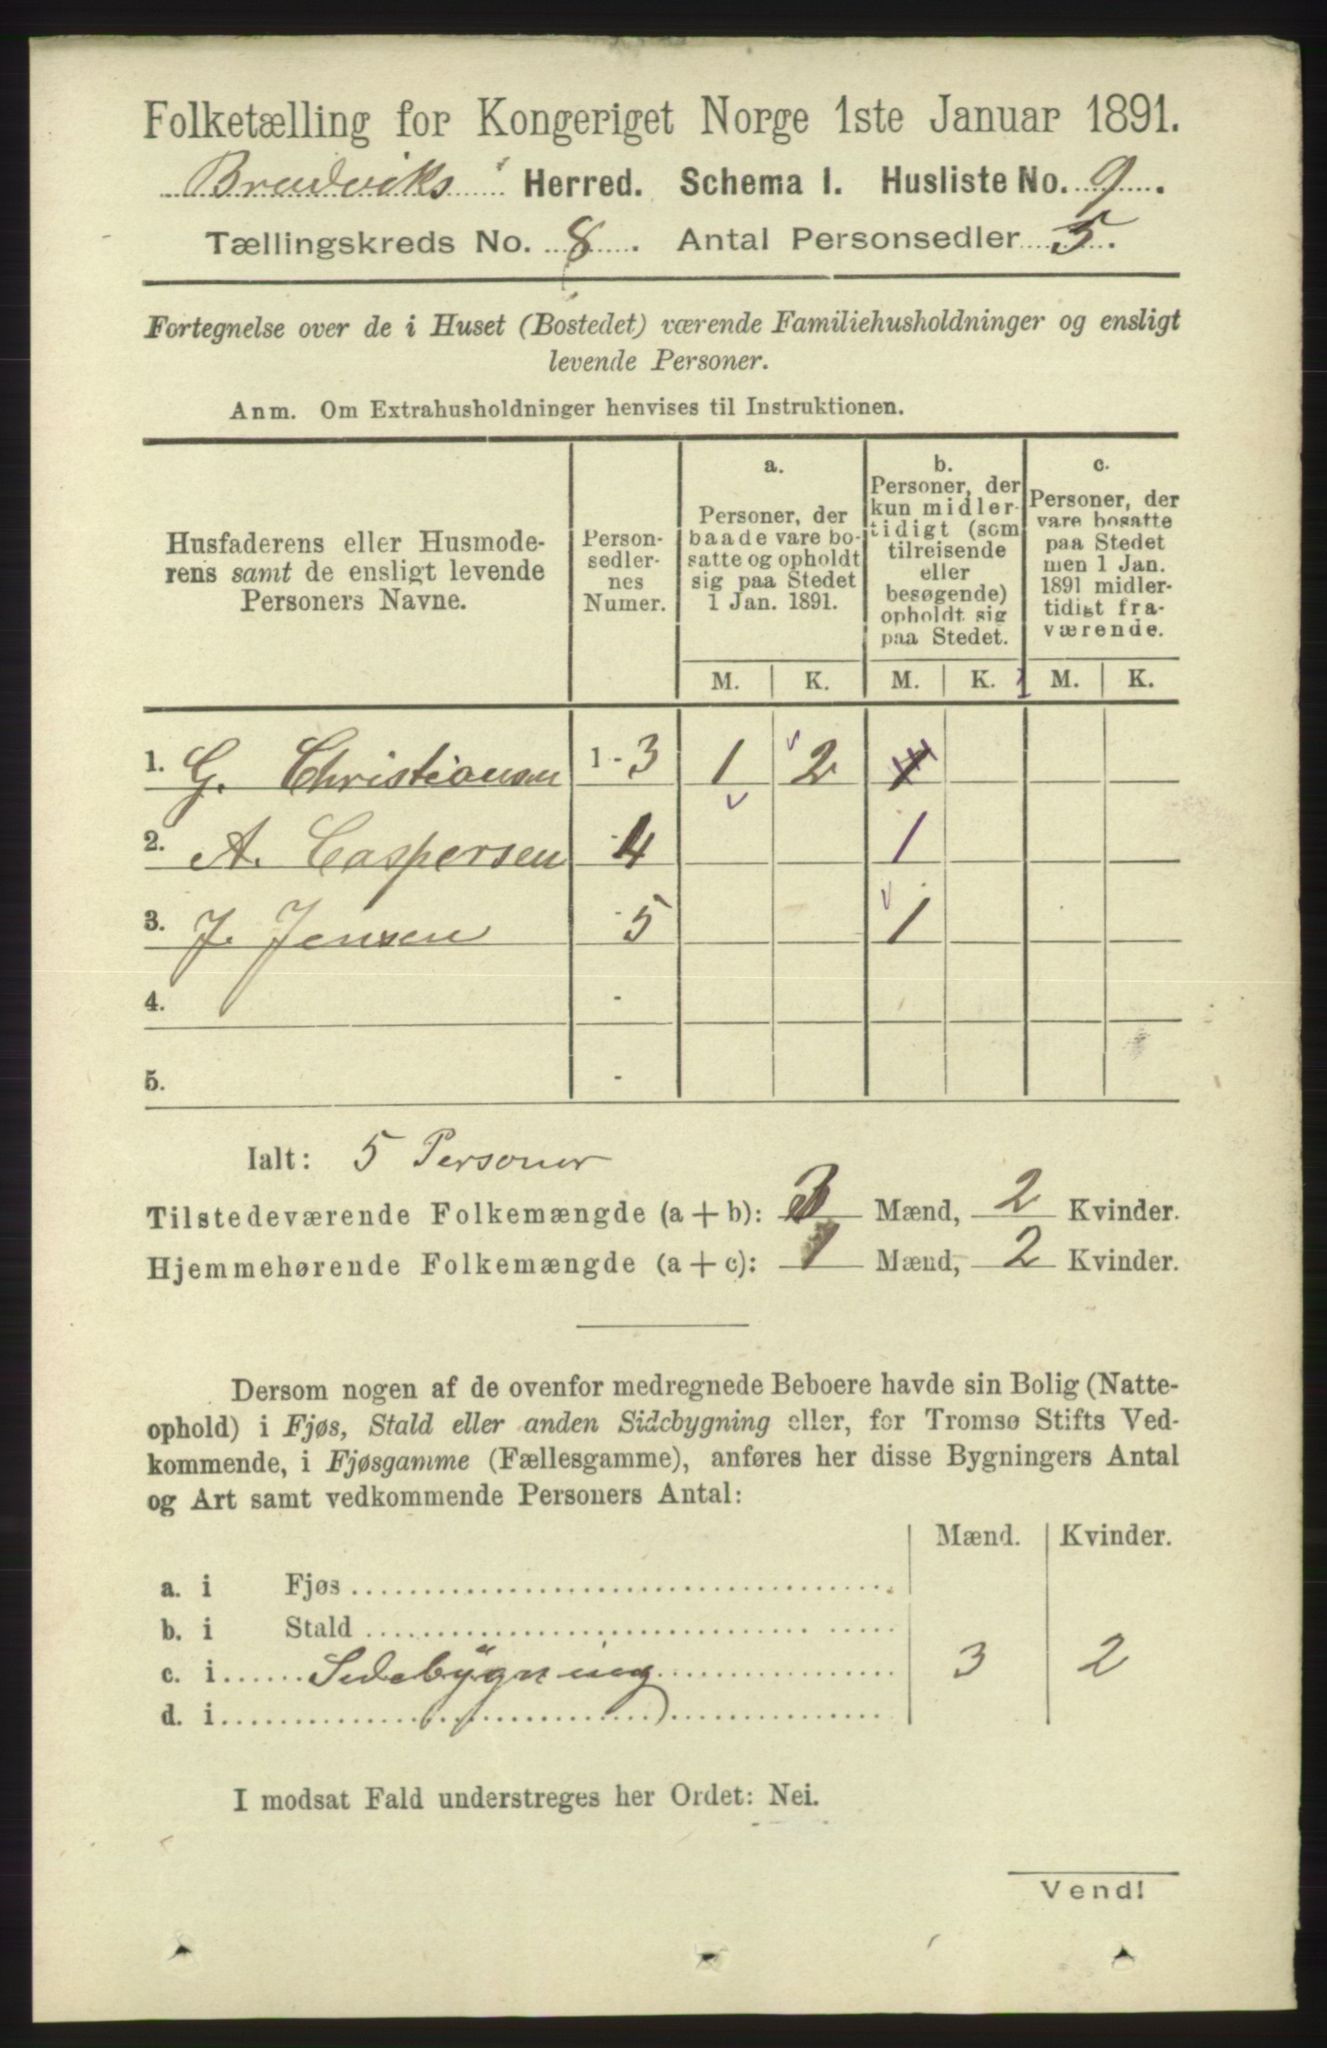 Folketælling for Kongeriget Norge 1ste Januar 1891.
Brudviks Herred. Schema I. Husliste No. 9.
Tællingskreds No. 8. Antal Personsedler 5.
Fortegnelse over de i Huset (Bostedet) værende Familiehusholdninger og ensligt
levende Personer.
Anm. Om Extrahusholdninger henvises til Instruktionen.
Husfaderens eller Husmode-
rens samt de ensligt levende
Personers Navne.
Person-
sedler-
nes
Numer.
a.
Personer, der
baade vare bo-
satte og opholdt
sig paa Stedet
1 Jan. 1891.
b.
Personer, der
kun midler-
tidigt (som
tilreisende
eller
besøgende)
opholdt sig
paa Stedet.
c.
Personer, der
vare bosatte
paa Stedet
men 1 Jan.
1891 midler-
tidigt fra-
værende.
M. K. M. K. M. K.
1. G. Christiansen 1-3 1 2 1
2. A. Caspersen -4 1
3. J. Jensen -5 1
4. -
5. -
Ialt: 5 Personer
Tilstedeværende Folkemængde (a+b): 3 Mænd, 2 Kvinder.
Hjemmehørende Folkemængde (a+c): 1 Mænd, 2 Kvinder.
Dersom nogen af de ovenfor medregnede Beboere havde sin Bolig (Natte-
ophold) i Fjøs, Stald eller anden Sidebygning eller, for Tromsø Stifts Ved-
kommende, i Fjøsgamme (Fællesgamme), anføres her disse Bygningers Antal
og Art samt vedkommende Personers Antal:
Mænd. Kvinder.
a. i Fjøs
b. i Stald
c. i Sidebygning 3 2
d. i
I modsat Fald understreges her Ordet: Nei.
Vend!